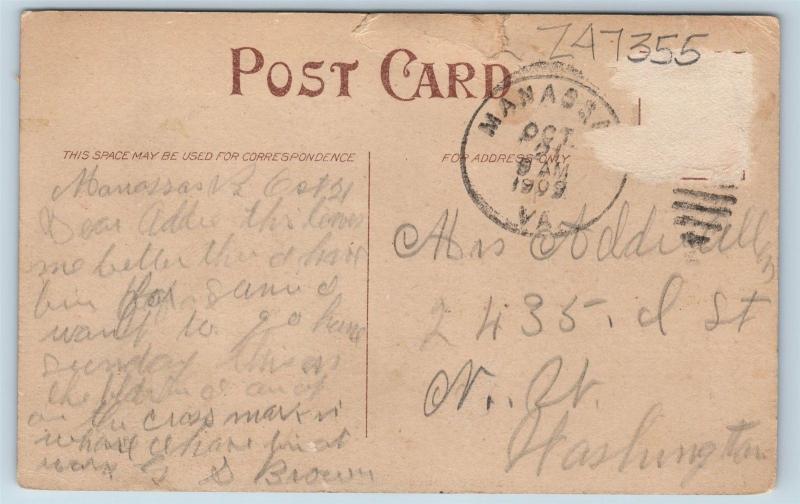 Z47355
POST CARD
MANASSA
OCT
21
9 AM
1909
VA.
THIS SPACE MAY BE USED FOR CORRESPONDENCE
FOR ADDRESS ONLY
Manassas Va Oct 21
Dear Addie this leves
me better then I have
bin for
want to go home
sunday this is
the I am at
on the cross mark is
whare I have bin at
work G S Brown
Mrs Addie Allen
2435. I St
N. W.
Washington